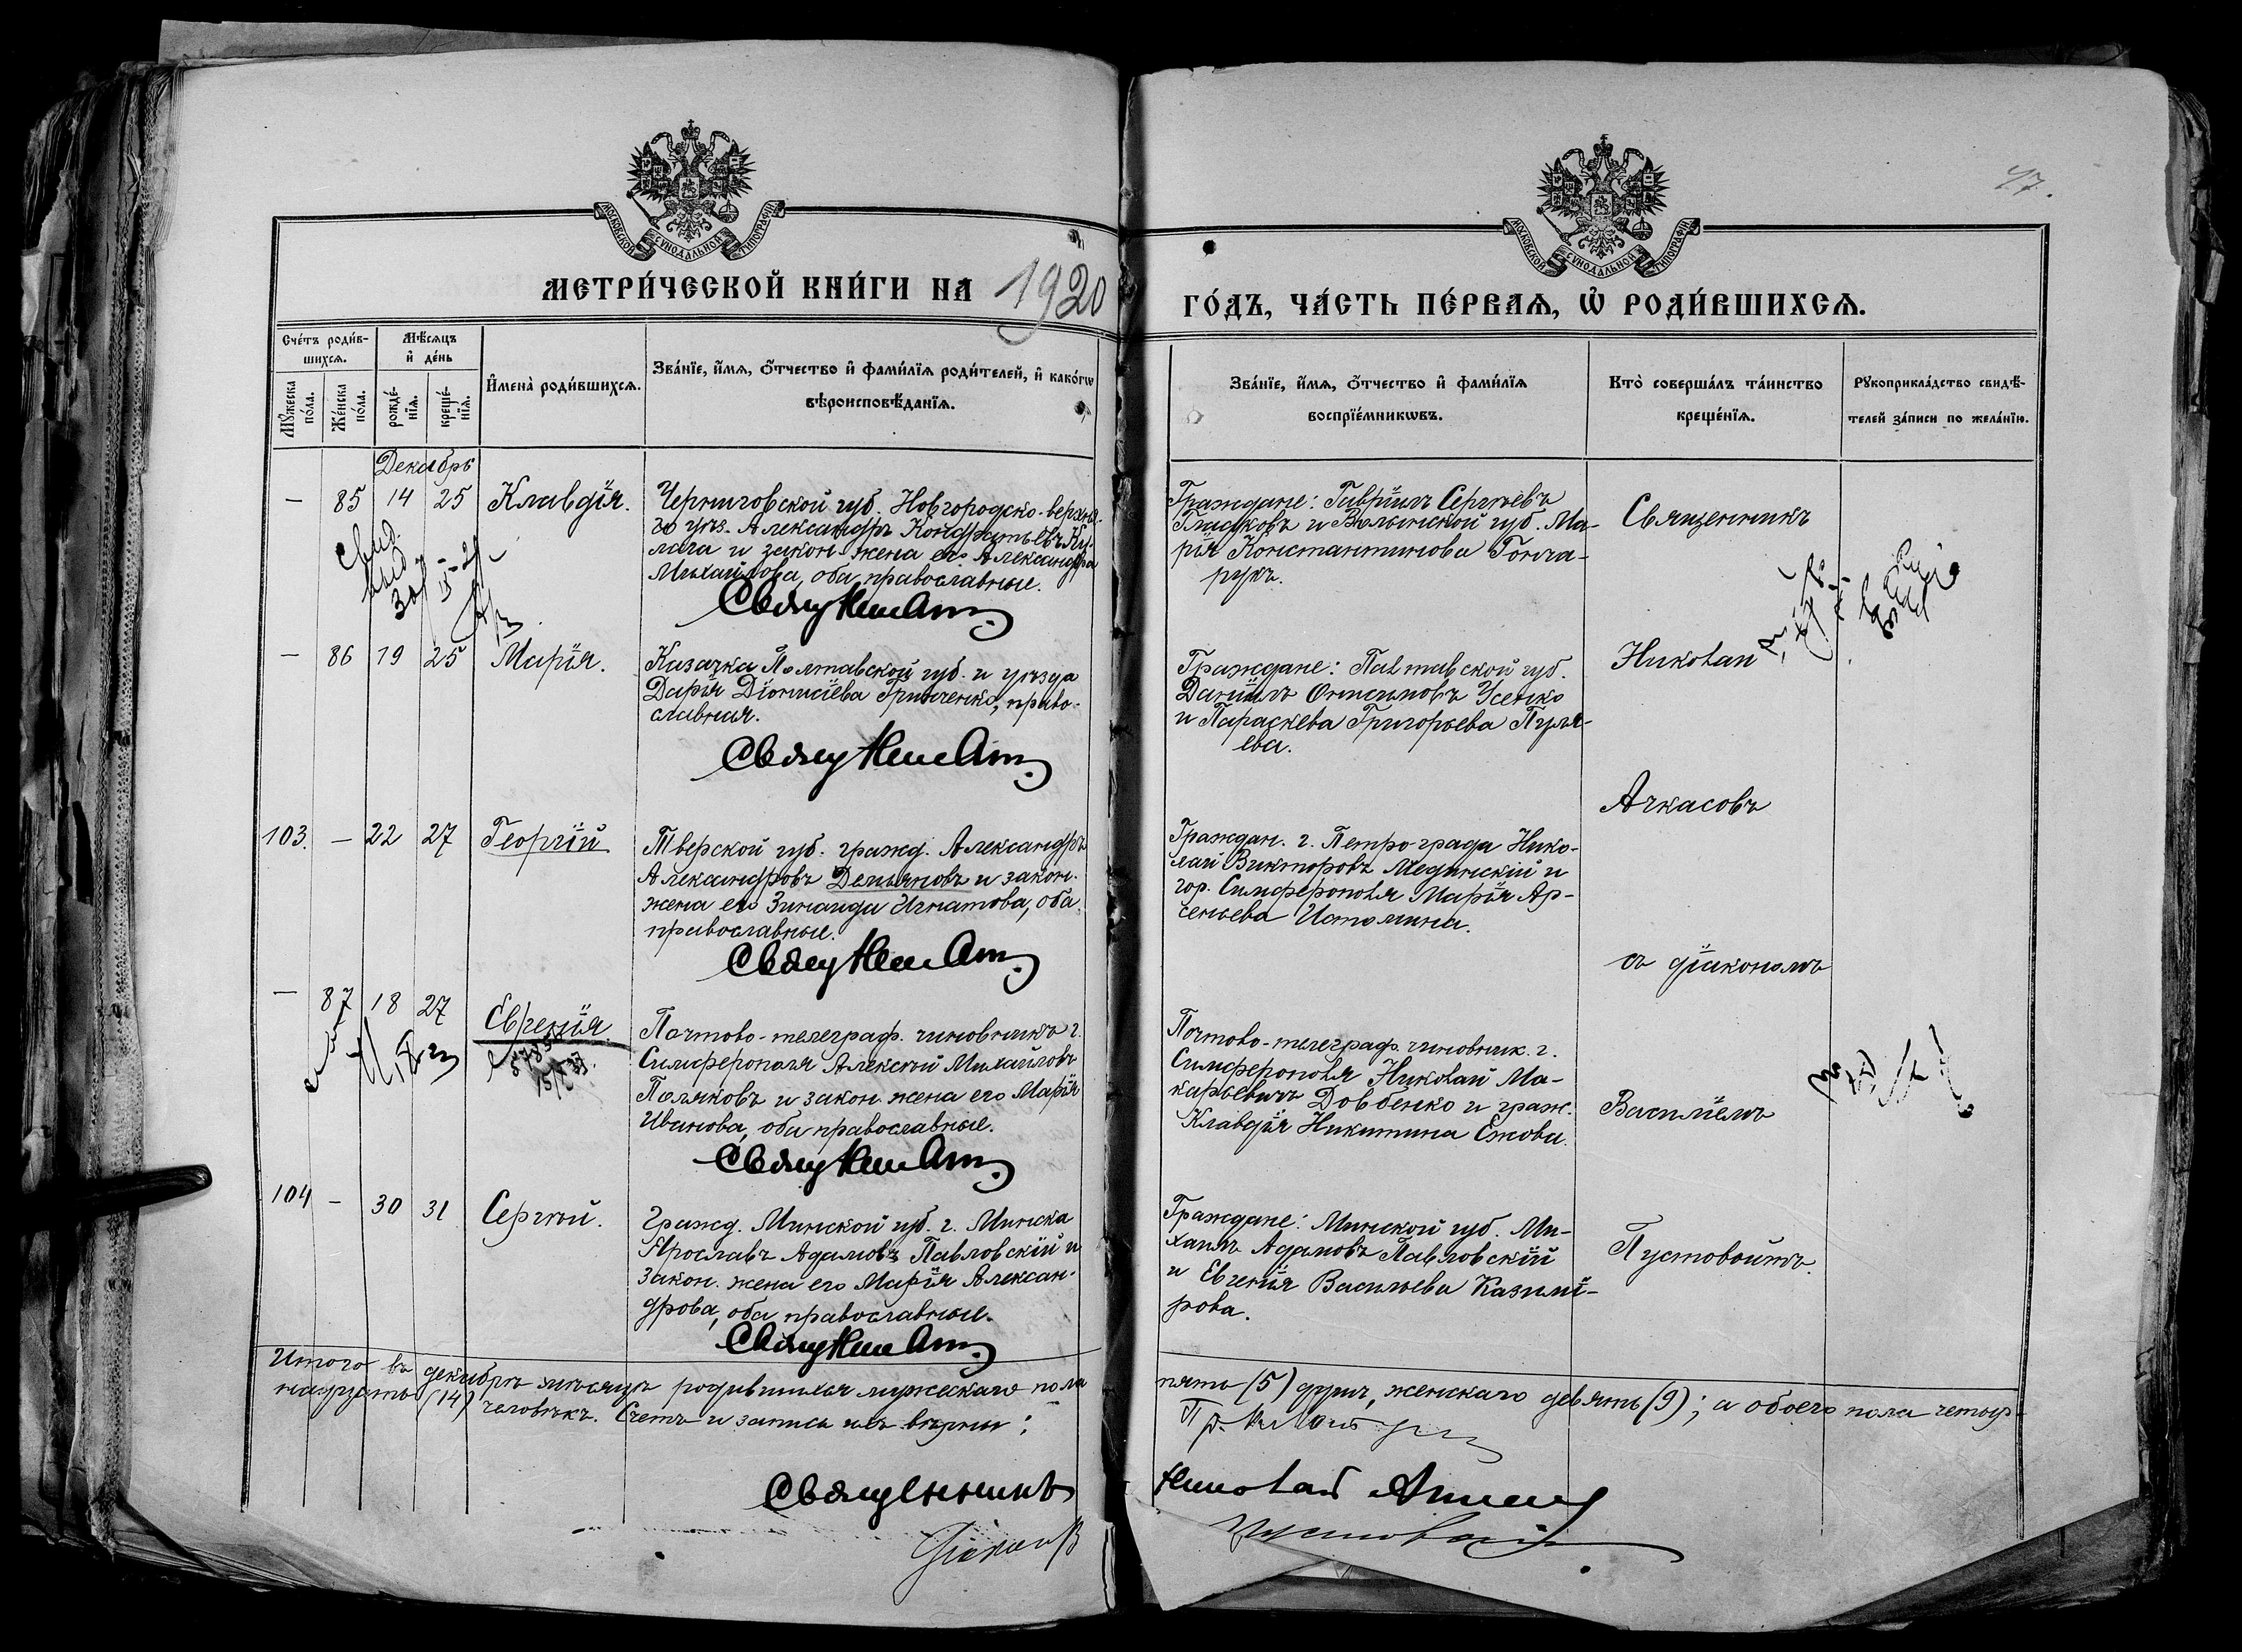 47.
МОСКОВСКОЙ СѴНОДАЛЬНОЙ ТИПОГРАФІИ
МОСКОВСКОЙ СѴНОДАЛЬНОЙ ТИПОГРАФІИ
МЕТРИ́ЧЕСКОЙ КНИ́ГИ НА 1920
ГО́ДЪ, ЧА́СТЬ ПЕ́РВАѦ, Ѡ҆ РОДИ́ВШИХСѦ.
Сче́тъ роди́в-
шихсѧ.
Мꙋ́жеска по́ла.
Же́нска по́ла.
Мѣ́сѧцъ
и҆ де́нь
рожде́-
нїѧ.
креще́-
нїѧ.
И҆мена̀ роди́вшихсѧ.
Зва́нїе, и҆́мѧ, ѻ҆́тчество и҆ фами́лїѧ роди́телей, и҆ како́гѡ
вѣроисповѣ́данїѧ.
Зва́нїе, и҆́мѧ, ѻ҆́тчество и҆ фами́лїѧ
воспрїе́мникѡвъ.
Кто̀ соверша́лъ та́инство
креще́нїѧ.
Рꙋкоприкла́дство свидѣ́-
телей за́писи по жела́нїю.
Декабрь
— 85 14 25 Клавдія.
Черниговской губ. Новгородско-верск-
го уѣз. Александръ Кондратьевъ Ку-
лага и закон. жена его Александра
Михайлова, оба православные.
Граждане: Гавріилъ Сергѣевъ
Гладковъ и Волынской губ. Ма-
рія Константинова Гонча-
рукъ.
Священникъ
— 86 19 25 Марія.
Казачка Полтавской губ. и уѣзда
Дарія Діонисіева Гриченко, право-
славная.
Граждане: Полтавской губ.
Даніилъ Онисимовъ Усенко
и Параскева Григорьева Пуля-
ева.
Николай
Ачкасовъ
103. — 22 27 Георгій
Тверской губ. гражд. Александръ
Александровъ Демьяновъ и закон.
жена его Зинаида Игнатова, оба
православные.
Граждан. г. Петрограда Нико-
лай Викторовъ Мединскій и
гор. Симферополя Марія Ар-
сеньева Истомина.
съ діакономъ
— 87 18 27 Евгенія.
Почтово-телеграф. чиновникъ г.
Симферополя Алексѣй Михайловъ
Поляковъ и закон. жена его Марія
Иванова, оба православные.
Почтово-телеграф. чиновник. г.
Симферополя Николай Ма-
карьевичъ Довбенко и граж.
Клавдія Никитина Ежова.
Василіемъ
104 — 30 31 Сергѣй.
Гражд. Минской губ. г. Минска
Ярославъ Адамовъ Павловскій и
закон. жена его Марія Алексан-
дрова, оба православные.
Граждане: Минской губ. Ми-
хаилъ Адамовъ Павловскій
и Евгенія Васильева Казими-
рова.
Пустовойтъ.
Итого въ декабрѣ мѣсяцѣ родившихся мужескаго пола пять (5) душъ, женскаго девять (9); а обоего пола четыр-
надцать (14) человѣкъ. Счетъ и запись ихъ вѣрны:
Священникъ Николай
Діаконъ